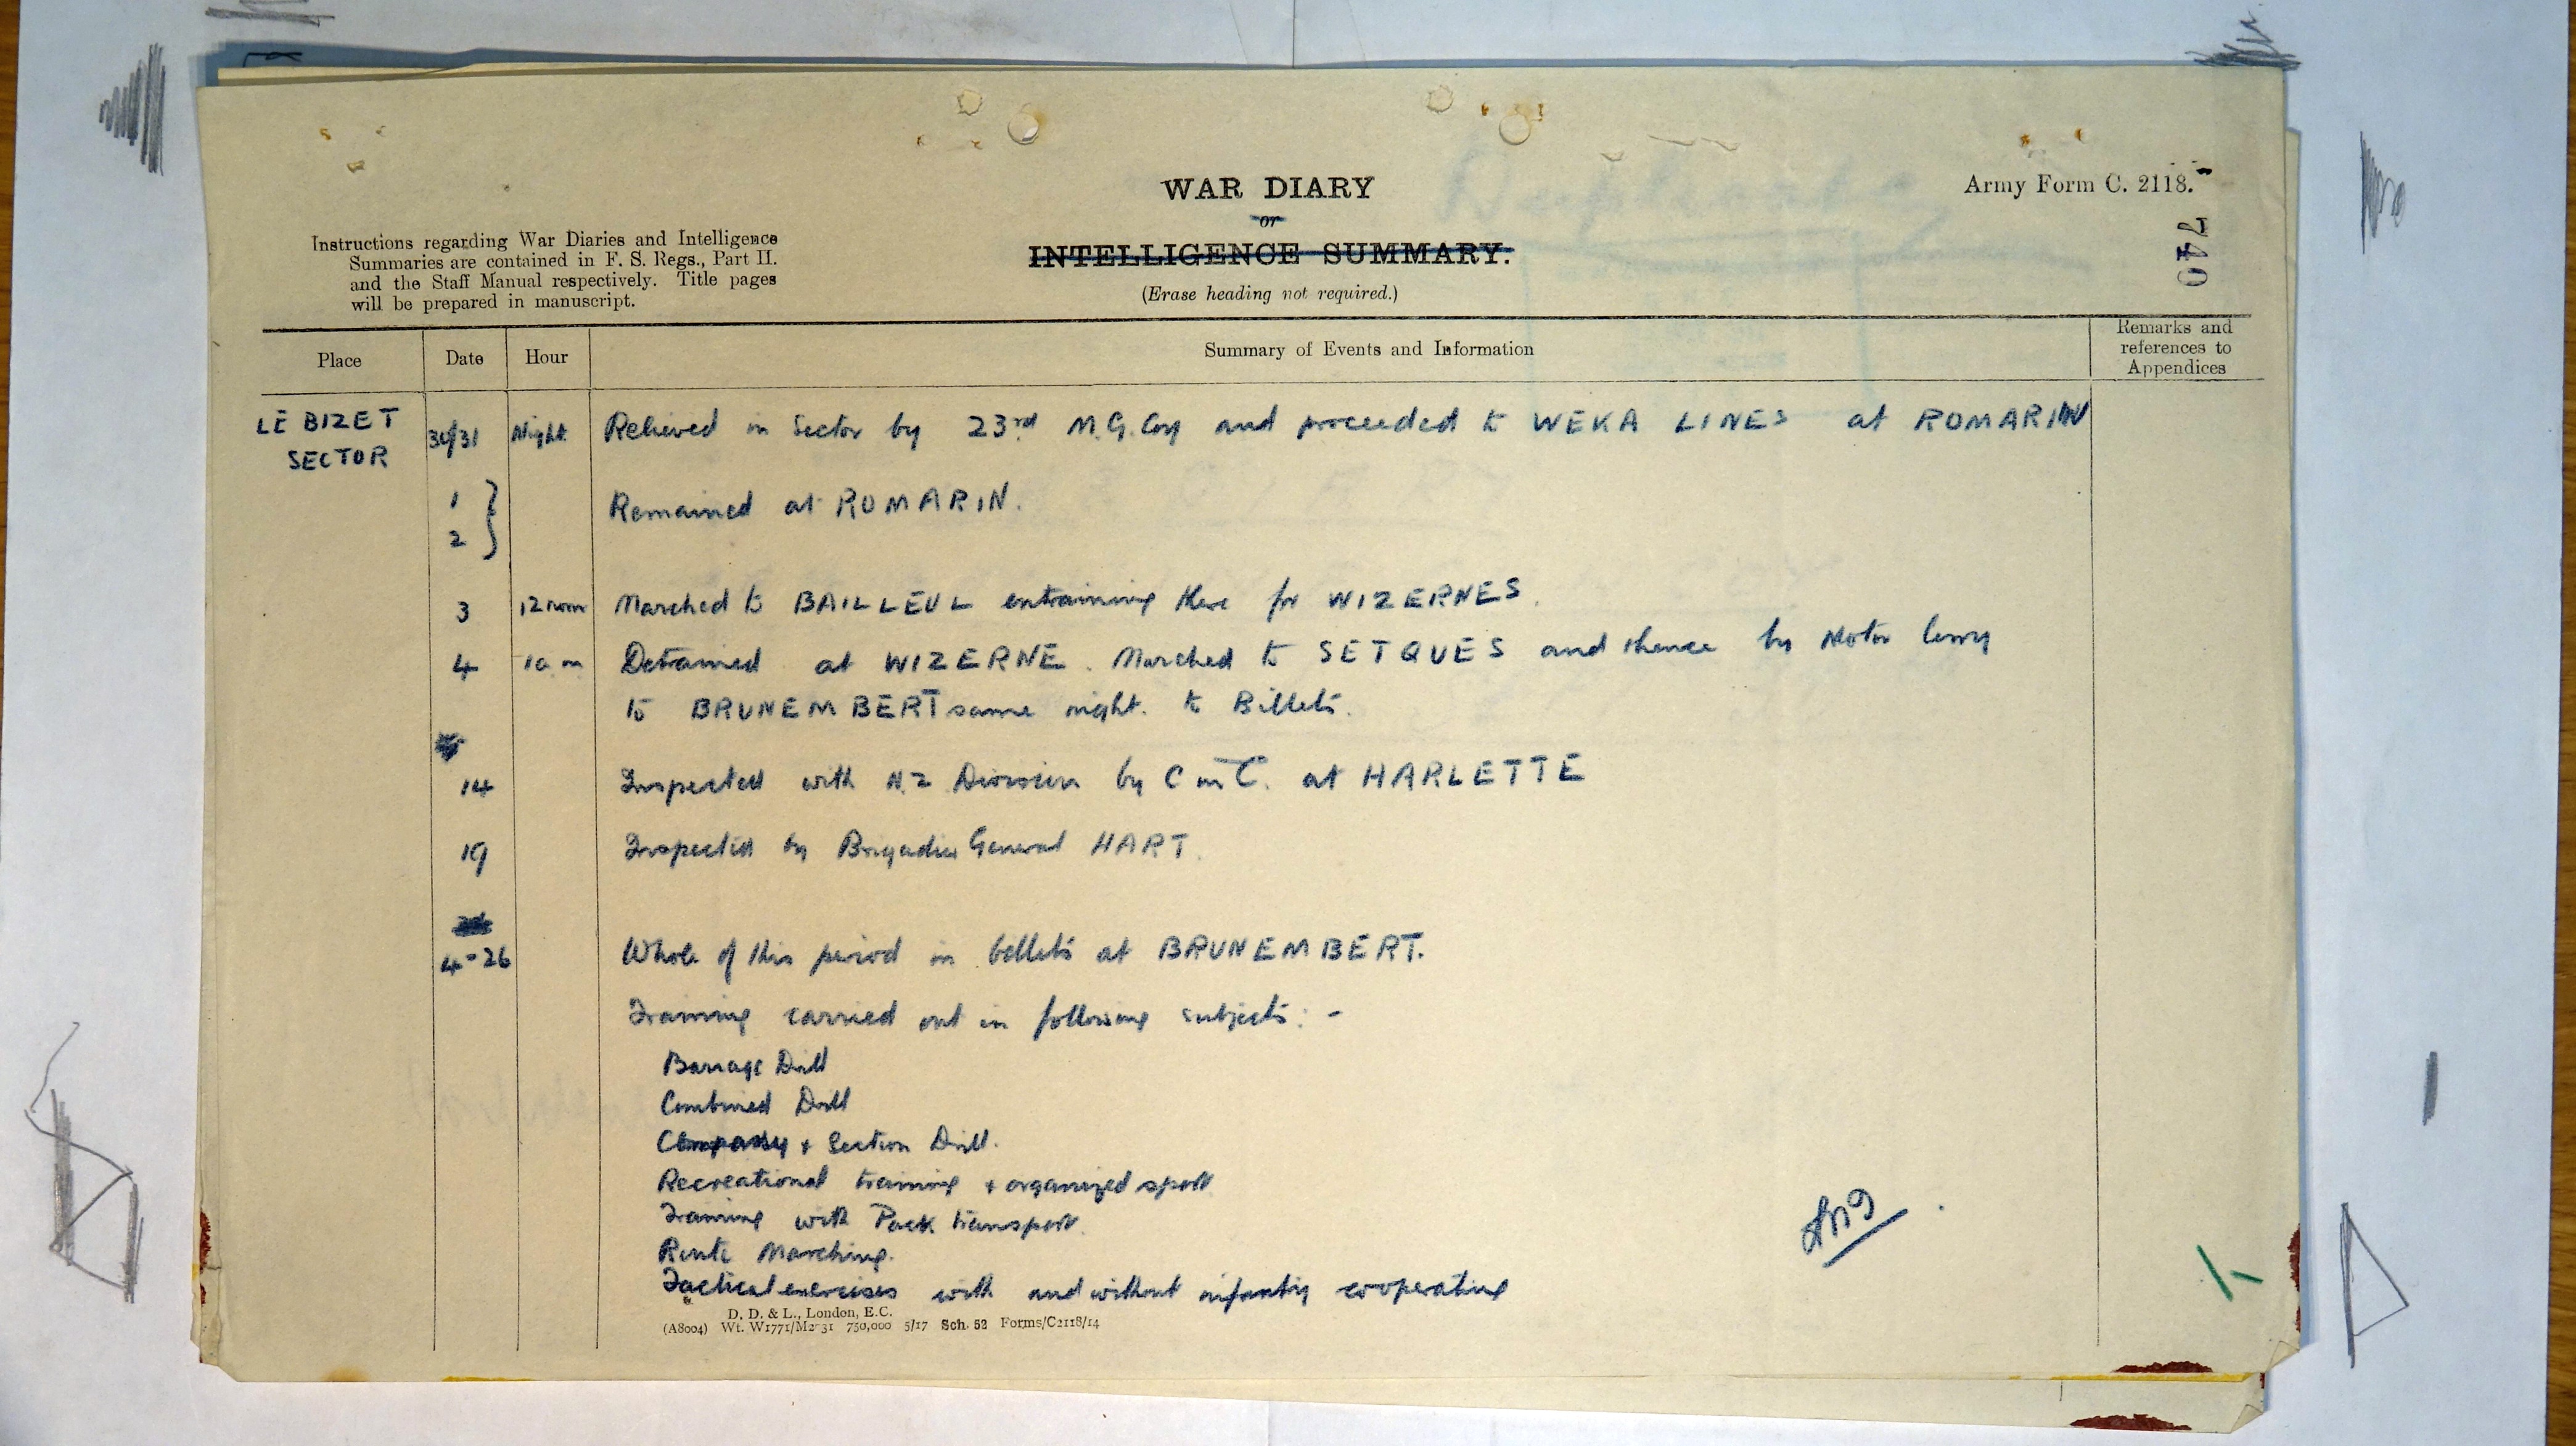 WAR DIARY
or
INTELLIGENCE SUMMARY.
(Erase heading not required.)
Army Form C. 2118.
740
Instructions regarding War Diaries and Intelligence
Summaries are contained in F. S. Regs., Part II.
and the Staff Manual respectively. Title pages
will be prepared in manuscript.
Place Date Hour Summary of Events and Information Remarks and
references to
Appendices
LE BIZET 30/31 Night Relieved in Sector by 23rd M.G. Coy and proceeded to WEKA LINES at ROMARIN
SECTOR
1 Remained at ROMARIN.
2
3 12 noon Marched to BAILLEUL entraining there for WIZERNES.
4 1 a.m Detrained at WIZERNE. Marched to SETQUES and thence by Motor lorry
to BRUNEMBERT same night. to Billets.
14 Inspected with N.Z Division by C in C. at HARLETTE
19 Inspected by Brigadier General HART.
4-26 Whole of this period in billets at BRUNEMBERT.
Training carried out in following subjects: -
Barrage Drill
Combined Drill
Company + Section Drill.
Recreational training + organized sport
Training with Pack transport.
Route Marching.
Tactical exercises with and without infantry cooperating
D. D. & L., London, E.C.
(A8004) Wt. W1771/M2 31 750,000 5/17 Sch. 52 Forms/C2118/14